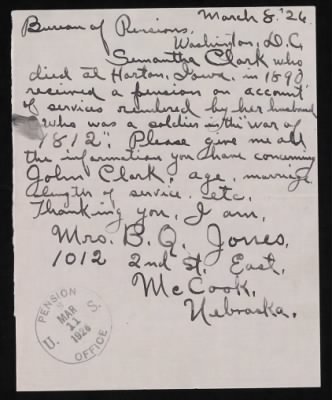 March 8, '26
Bureau of Pensions,
Washington, D.C.
Samantha Clark who
died at Harton, Iowa, in 1890
received a pension on account
of services rendered by her husband
who was a soldier in the "war of
1812". Please give me all
the information you have concerning
John Clark, age, marriage
length of service, etc.
Thanking you, I am,
Mrs. B. Q. Jones,
1012 2nd St. East,
McCook,
Nebraska.
PENSION
U. S.
MAR
11
1926
OFFICE